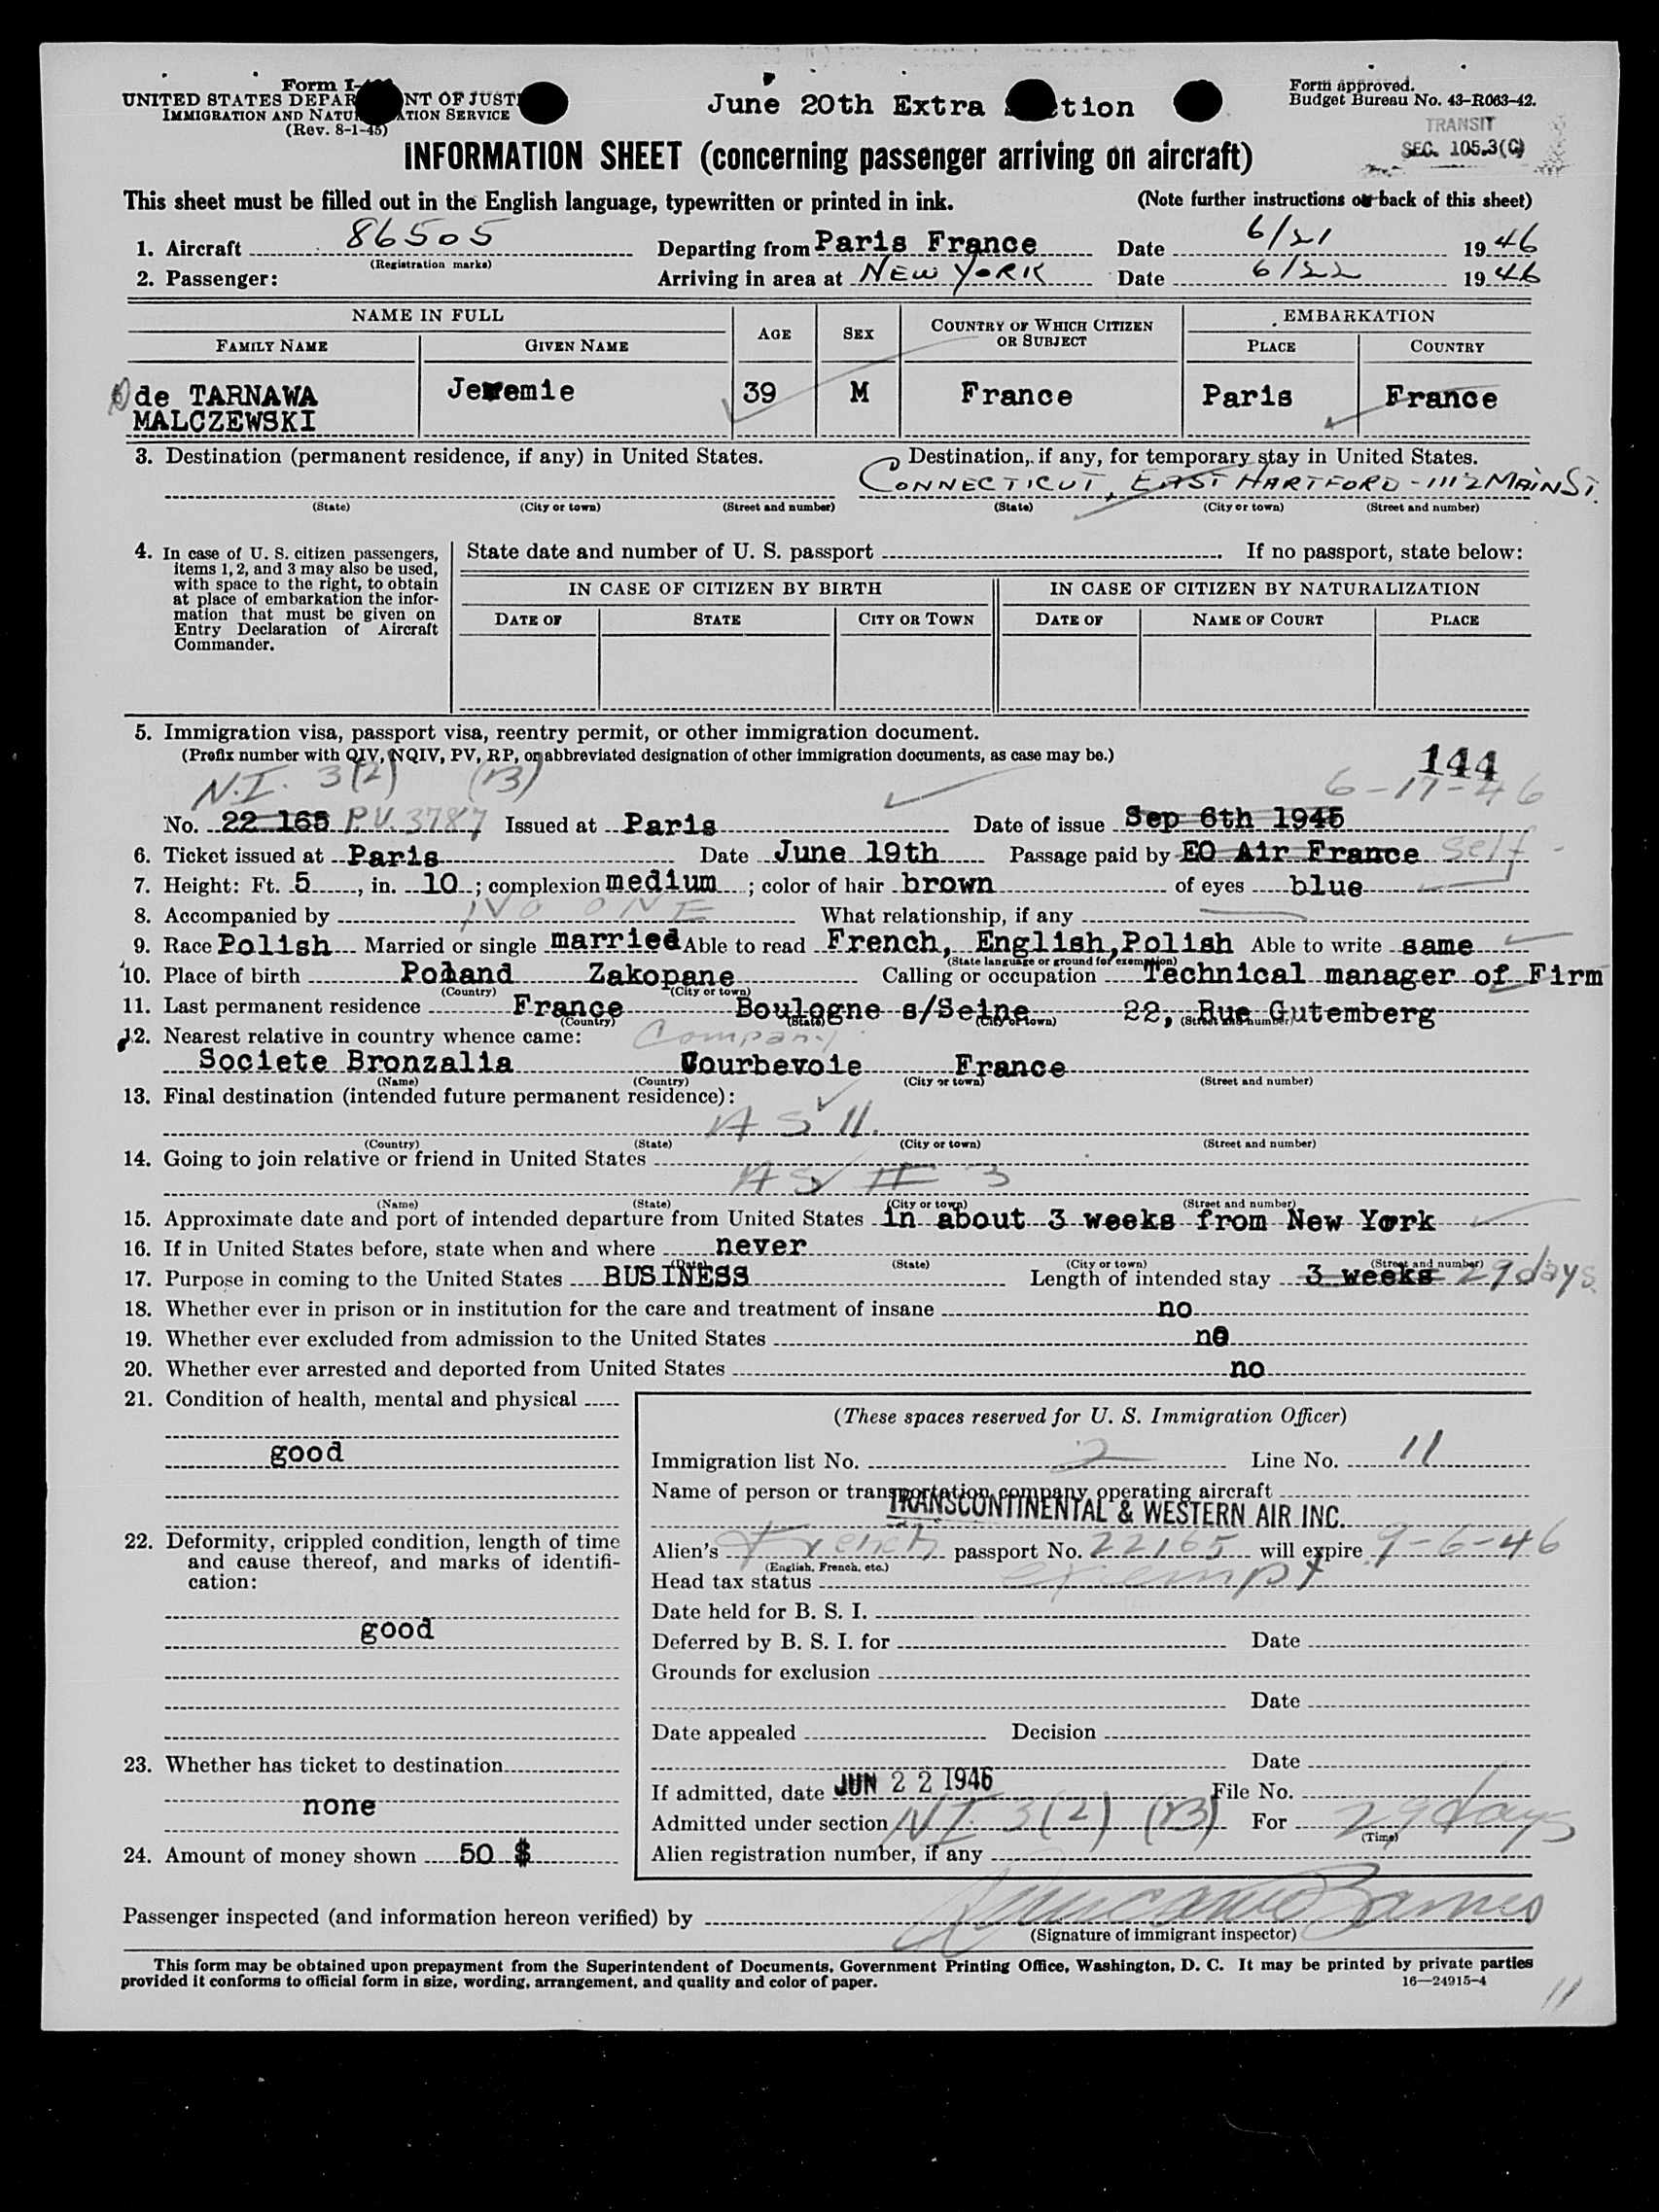 Form I-
UNITED STATES DEPAR NT OF JUST
IMMIGRATION AND NATU ATION SERVICE
(Rev. 8-1-45)
June 20th Extra tion
Form approved.
Budget Bureau No. 43-R063-42.
TRANSIT
SEC. 105.3(C)
INFORMATION SHEET (concerning passenger arriving on aircraft)
This sheet must be filled out in the English language, typewritten or printed in ink. (Note further instructions on back of this sheet)
1. Aircraft 86505 Departing from Paris France Date 6/21 1946
(Registration marks)
2. Passenger: Arriving in area at NEW YORK Date 6/22 1946
NAME IN FULL AGE SEX COUNTRY OF WHICH CITIZEN OR SUBJECT EMBARKATION
FAMILY NAME GIVEN NAME PLACE COUNTRY
de TARNAWA MALCZEWSKI Jeremie 39 M France Paris France
3. Destination (permanent residence, if any) in United States. Destination, if any, for temporary stay in United States.
CONNECTICUT, EAST HARTFORD - 1112 MAIN ST.
(State) (City or town) (Street and number) (State) (City or town) (Street and number)
4. In case of U. S. citizen passengers, items 1, 2, and 3 may also be used, with space to the right, to obtain at place of embarkation the information that must be given on Entry Declaration of Aircraft Commander.
State date and number of U. S. passport If no passport, state below:
IN CASE OF CITIZEN BY BIRTH IN CASE OF CITIZEN BY NATURALIZATION
DATE OF STATE CITY OR TOWN DATE OF NAME OF COURT PLACE
5. Immigration visa, passport visa, reentry permit, or other immigration document.
(Prefix number with QIV, NQIV, PV, RP, or abbreviated designation of other immigration documents, as case may be.) 144
N.I. 3(2) (B) 6-17-46
No. 22 165 P.V. 3787 Issued at Paris Date of issue Sep 6th 1945
6. Ticket issued at Paris Date June 19th Passage paid by EO Air France Self
7. Height: Ft. 5, in. 10; complexion medium; color of hair brown of eyes blue
8. Accompanied by NO ONE What relationship, if any
9. Race Polish Married or single married Able to read French, English, Polish Able to write same
(State language or ground for exemption)
10. Place of birth Poland Zakopane Calling or occupation Technical manager of Firm
(Country) (City or town)
11. Last permanent residence France Boulogne s/Seine 22, Rue Gutemberg
(Country) (State) (City or town) (Street and number)
12. Nearest relative in country whence came: Company
Societe Bronzalia Courbevoie France
(Name) (Country) (City or town) (Street and number)
13. Final destination (intended future permanent residence):
AS 11.
(Country) (State) (City or town) (Street and number)
14. Going to join relative or friend in United States
AS # 3
(Name) (State) (City or town) (Street and number)
15. Approximate date and port of intended departure from United States in about 3 weeks from New York
16. If in United States before, state when and where never
(Date) (State) (City or town) (Street and number)
17. Purpose in coming to the United States BUSINESS Length of intended stay 3 weeks 29 days
18. Whether ever in prison or in institution for the care and treatment of insane no
19. Whether ever excluded from admission to the United States no
20. Whether ever arrested and deported from United States no
21. Condition of health, mental and physical
good
22. Deformity, crippled condition, length of time and cause thereof, and marks of identification:
good
23. Whether has ticket to destination
none
24. Amount of money shown 50 $
(These spaces reserved for U. S. Immigration Officer)
Immigration list No. 2 Line No. 11
Name of person or transportation company operating aircraft
TRANSCONTINENTAL & WESTERN AIR INC.
Alien's French passport No. 22165 will expire 9-6-46
(English, French, etc.)
Head tax status exempt
Date held for B. S. I.
Deferred by B. S. I. for Date
Grounds for exclusion
Date
Date appealed Decision
Date
If admitted, date JUN 22 1946 File No.
Admitted under section NI 3(2) (B) For 29 days
(Time)
Alien registration number, if any
Passenger inspected (and information hereon verified) by
(Signature of immigrant inspector)
This form may be obtained upon prepayment from the Superintendent of Documents, Government Printing Office, Washington, D. C. It may be printed by private parties
provided it conforms to official form in size, wording, arrangement, and quality and color of paper. 16—24915-4
11